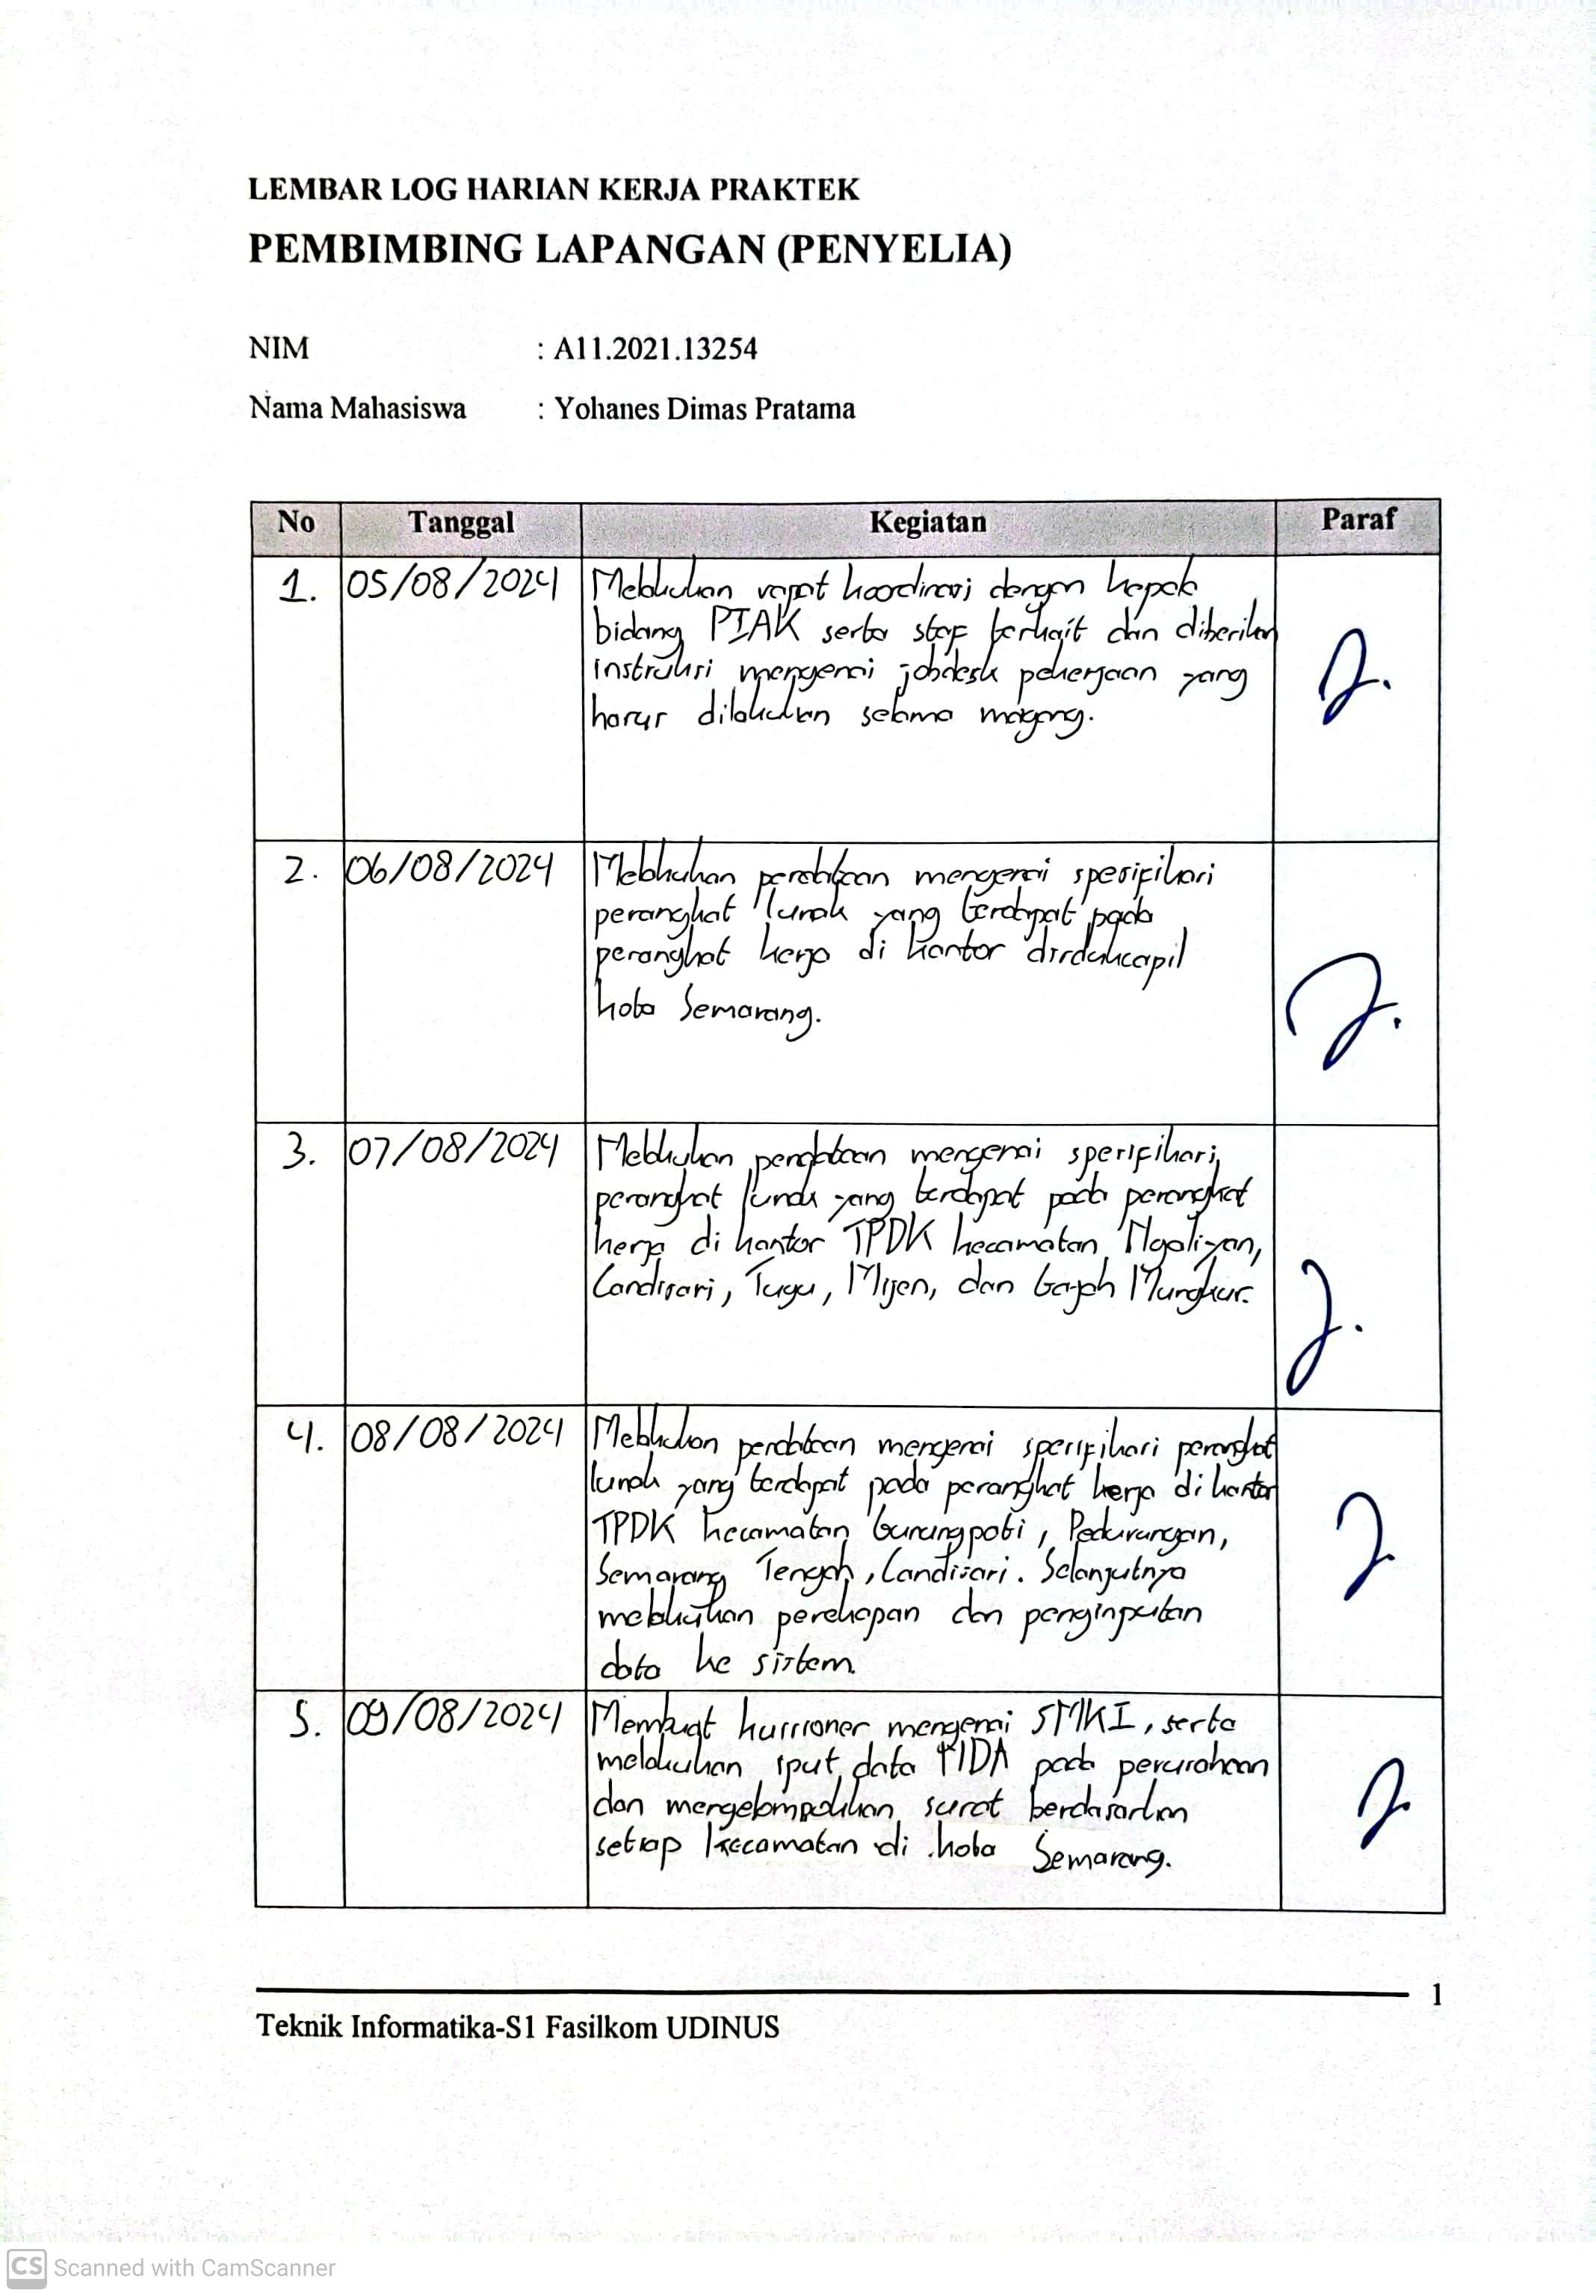 LEMBAR LOG HARIAN KERJA PRAKTEK
PEMBIMBING LAPANGAN (PENYELIA)
NIM : A11.2021.13254
Nama Mahasiswa : Yohanes Dimas Pratama
No Tanggal Kegiatan Paraf
1. 05/08/2024 Melakukan rapat koordinasi dengan kepala
bidang PIAK serta staf terkait dan diberikan
instruksi mengenai jobdesk pekerjaan yang
harus dilakukan selama magang.
2. 06/08/2024 Melakukan pendataan mengenai spesifikasi
perangkat lunak yang terdapat pada
perangkat kerja di kantor disdukcapil
kota Semarang.
3. 07/08/2024 Melakukan pendataan mengenai spesifikasi
perangkat lunak yang terdapat pada perangkat
kerja di kantor TPDK kecamatan Ngaliyan,
Candisari, Tugu, Mijen, dan Gajah Mungkur.
4. 08/08/2024 Melakukan pendataan mengenai spesifikasi perangkat
lunak yang terdapat pada perangkat kerja di kantor
TPDK kecamatan Gunungpati, Pedurungan,
Semarang Tengah, Candisari. Selanjutnya
melakukan perekapan dan penginputan
data ke sistem.
5. 09/08/2024 Membuat kuisioner mengenai SMKI, serta
melakukan iput data pada perusahaan
dan mengelompokkan surat berdasarkan
setiap kecamatan di kota Semarang.
1
Teknik Informatika-S1 Fasilkom UDINUS
CS Scanned with CamScanner